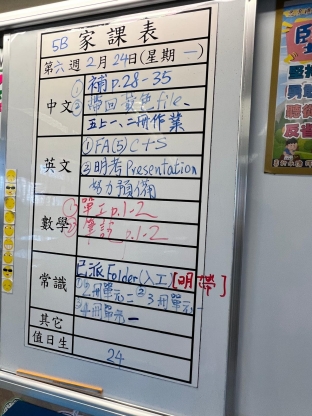 5B 家課表
第六週2月24日(星期一)
中文
①補p.28-35
②帶回藍色file、
五上一、二冊作業
英文
①FA(5)C+S
②明考Presentation
努力預備
數學
①單工p.1-2
②筆記p.1-2
常識
已派Folder(入工)[明帶]
二冊單元二 ②3冊單元一
③4冊單元一
其它
值日生
24